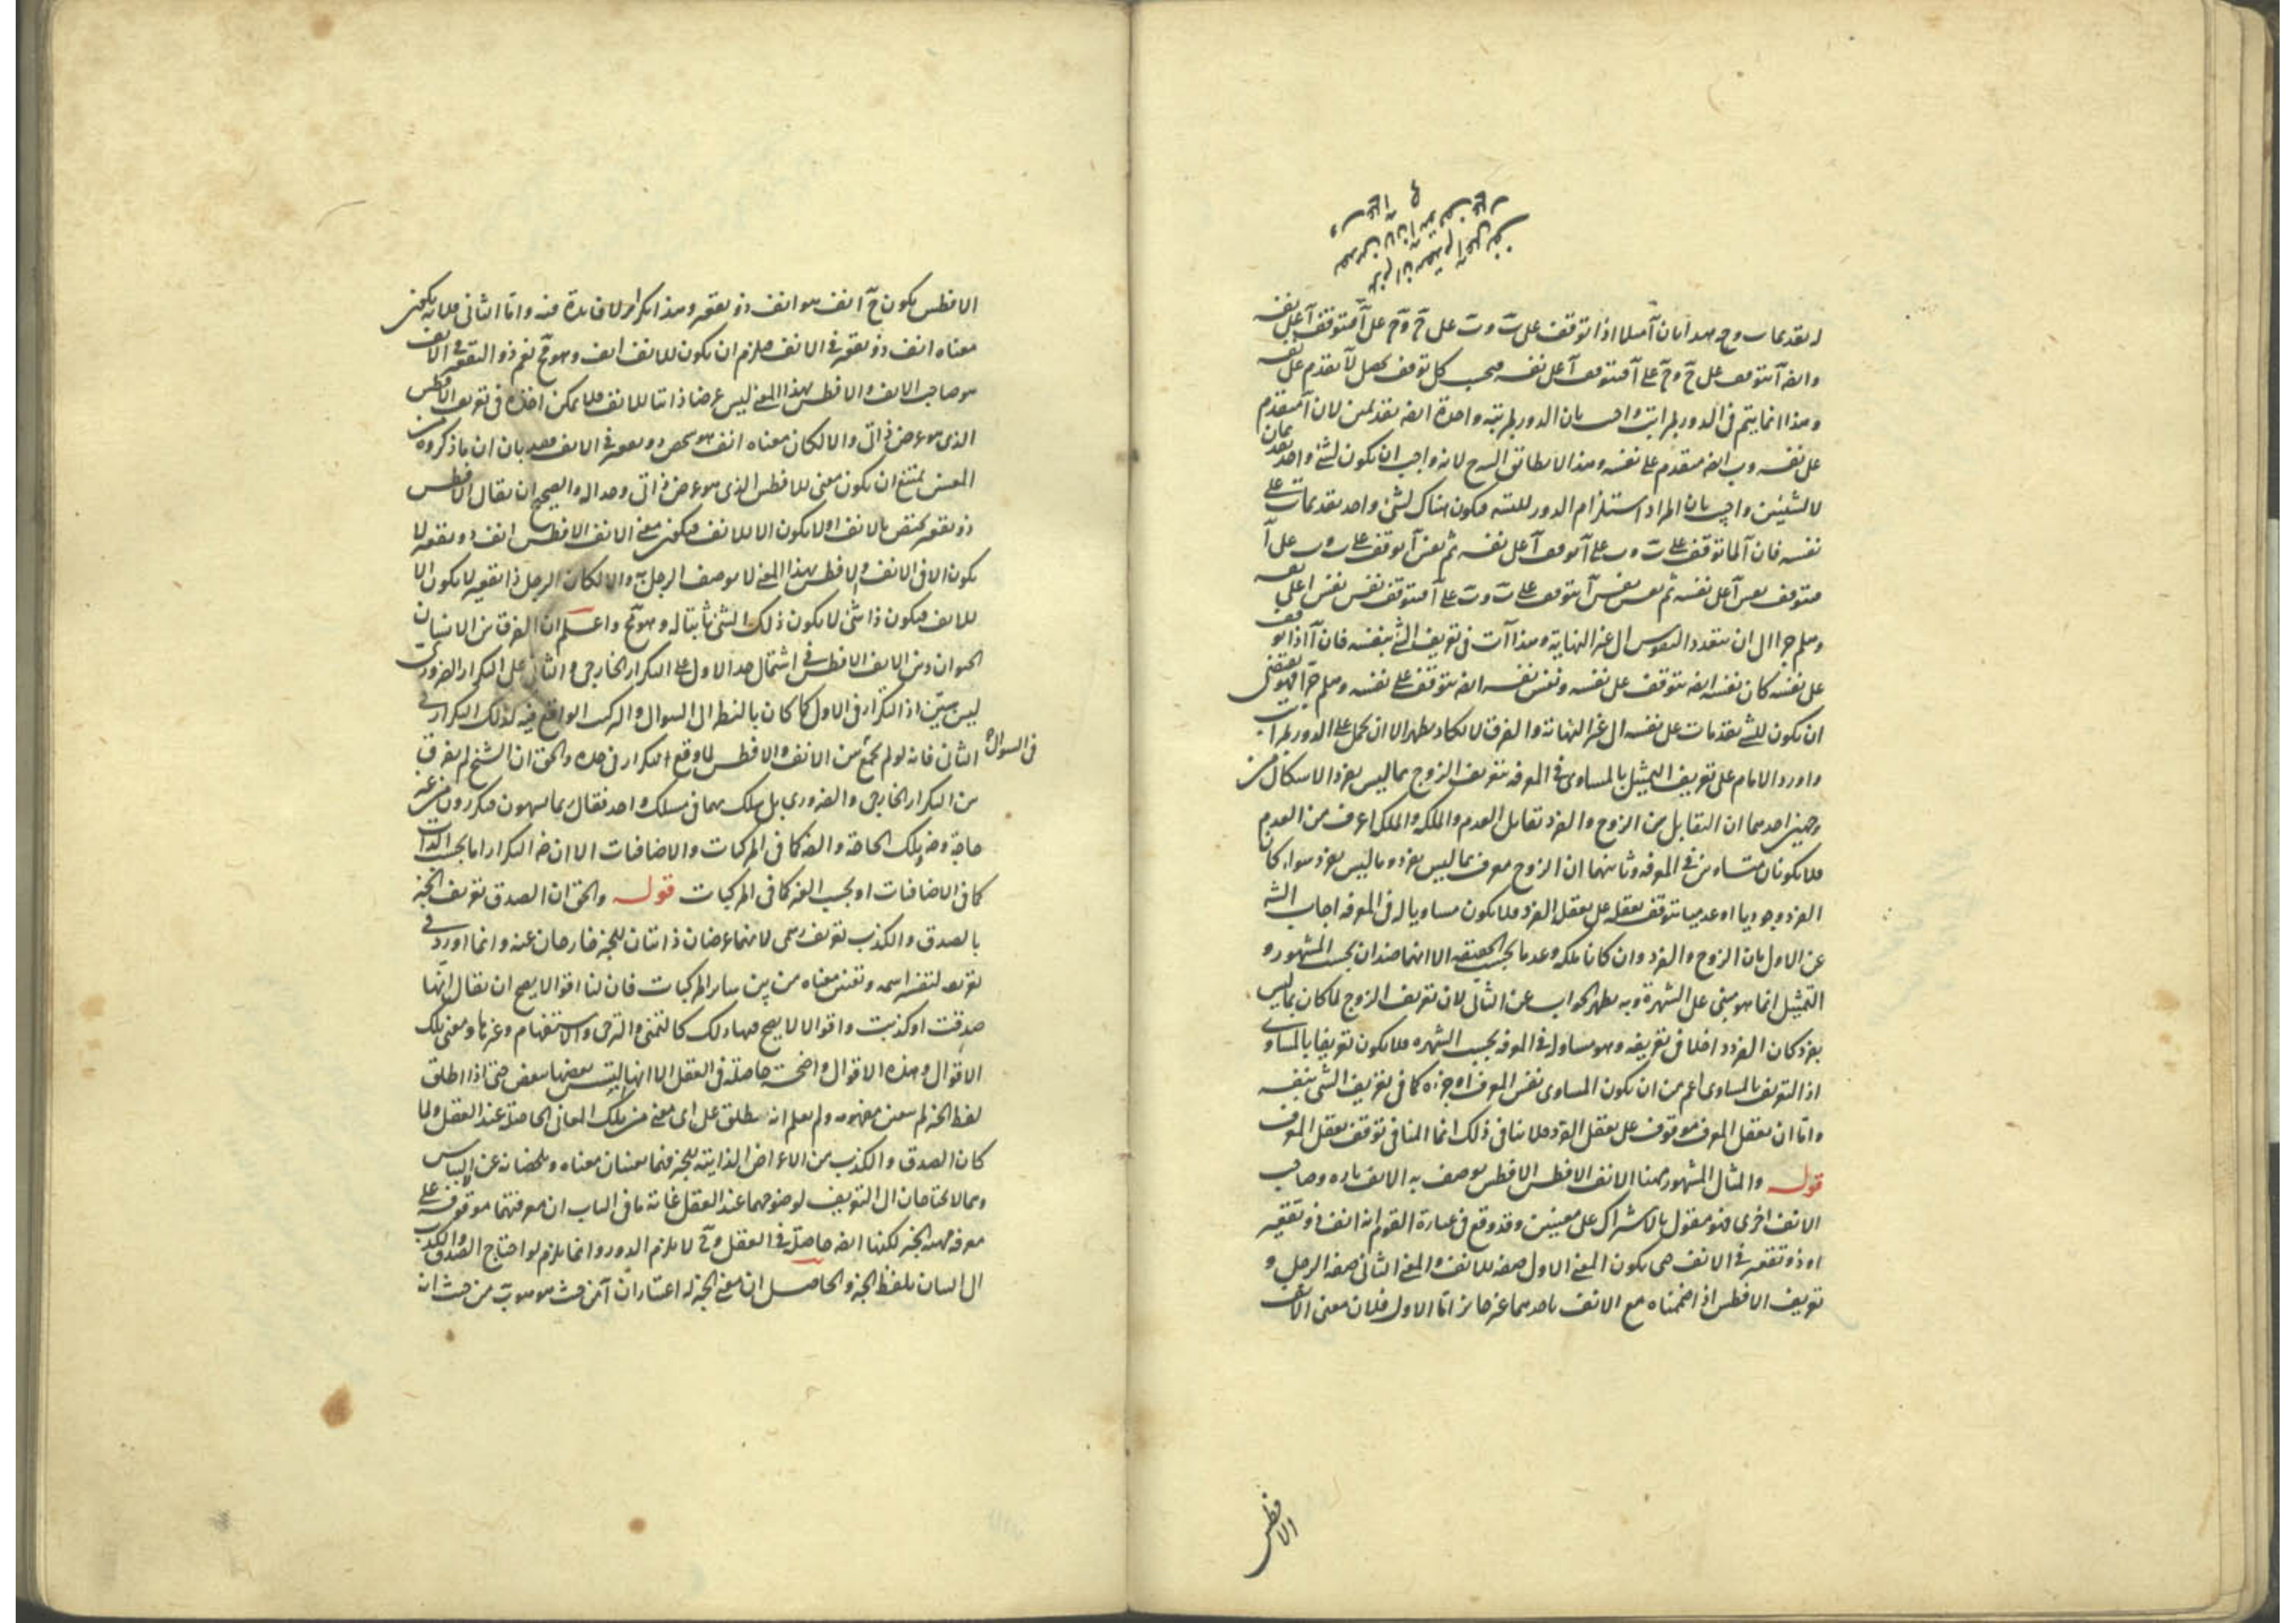 له تقدمات وح بهذا بان آ مثلا اذا توقف على ب وب على ج وج على آ فتوقف آ على نفسه
وايضا آ يتوقف على ج وج على آ فيتوقف آ على نفسه فبحسب كل توقف يحصل لآ تقدم على نفسه
وهذا انما يتم في الدور بمراتب واجب بان الدور بمرتبة واحدة ايضا تقدمين لان آ متقدم
على نفسه وب ايضا متقدم على نفسه وهذا لا يطابق الشرح لانه واجب ان يكون لشئ واحد تقدمان
لا لشيئين واجيب بان المراد استلزام الدور للتسـ فيكون هناك لشئ واحد تقدمات على
نفسه فان آ لما توقف على ب وب على آ توقف آ على نفسه ثم نفس آ يتوقف على ب وب على آ
فتوقف نفس آ على نفسه ثم نفس نفس آ يتوقف على ب وب على آ فيتوقف نفس نفس آ على نفسه
وهلم جرا الى ان يتعدد النفوس الى غير النهاية وهذا آت في تعريف الشئ بنفسه فان آ اذا توقف
على نفسه كان نفسه ايضا يتوقف على نفسه ونفس نفسه ايضا يتوقف على نفسه وهلم جرا فهو يقتضى
ان يكون للشئ تقدمات على نفسه الى غير النهاية والفرق لا يكاد يظهر الا ان يحمل على الدور بمراتب
واورد الامام على تعريف التمثيل بالمساوى في المعرفة بتعريف الزوج بما ليس بفرد الاشكال من
وجهين احدهما ان التقابل بين الزوج والفرد تقابل العدم والملكة والملكة اعرف من العدم
فلا يكونان متساويين في المعرفة وثانيهما ان الزوج معرف بما ليس بفرد وما ليس بفرد سواء كان
الفرد وجوديا او عدميا يتوقف تعقله على تعقل الفرد فلا يكون مساويا له في المعرفة اجاب الشـ
عن الاول بان الزوج والفرد وان كانا ملكة وعدما بحسب الحقيقة الا انهما ضدان بحسب المشهور و
التمثيل انما هو مبنى على الشهرة وبه يظهر الجواب عن الثاني لان تعريف الزوج لما كان بما ليس
بفرد كان الفرد داخلا في تعريفه وهو مساو له في المعرفة بحسب الشهرة فلا يكون تعريفا بالمساوى
اذ التعريف بالمساوى اعم من ان يكون المساوى نفس المعرف او جزءه كما في تعريف الشئ بنفسه
واما ان تعقل المعرف موقوف على تعقل الفرد فلا ينافى ذلك انما المنافى توقف تعقل المعرف
قوله والمثال المشهور ههنا الانف الافطس الافطس يوصف به الانف تارة وصاحب
الانف اخرى فهو مقول بالاشتراك على معنيين وقد وقع في عبارة القوم انه انف ذو تقعير
او ذو تقعير في الانف حتى يكون المعنى الاول صفة للانف والمعنى الثاني صفة الرجل و
تعريف الافطس اذا ضممناه مع الانف باحدهما غير جائز اما الاول فلان معنى الانف
الافطس
الافطس يكون ح آ انف هو انف ذو تقعير وهذا تكرار لا فائدة فيه واما الثاني فلانه يكون
معناه انف ذو تقعير في الانف فيلزم ان يكون للانف انف وهو مح نعم ذو التقعير في الانف
هو صاحب الانف والافطس بهذا المعنى ليس عرضا ذاتيا للانف فلا يمكن اخذه في تعريف الافطس
الذى هو عرض ذاتى والا لكان معناه انف هو شخص ذو تقعير في الانف فقد بان ان ما ذكروه من
المعنيين يمتنع ان يكون معنى للافطس الذى هو عرض ذاتى وحدا له والصحيح ان يقال الافطس
ذو تقعير مختص بالانف او لا يكون الا للانف فيكون معنى الانف الافطس انف ذو تقعير لا
يكون الا في الانف والافطس بهذا المعنى لا يوصف الرجل به والا لكان الرجل ذا تقعير لا يكون الا
للانف فيكون ذا شئ لا يكون ذلك الشئ ثابتا له وهو مح واعلم ان الفرق بين الانسان
الحيوان وبين الانف الافطس في اشتمال حد الاول على التكرار الخارجى والثاني على التكرار الضرورى
ليس ببين اذ التكرار في الاول كما كان بالنظر الى السوال والتركيب الواقع فيه كذلك التكرار في
الثاني فانه لو لم يجمع بين الانف والافطس في السوال لما وقع التكرار في حده والحق ان الشيخ لم يفرق
بين التكرار الخارجى والضرورى بل سلك بهما في مسلك واحد فقال ربما يسهون فيكررون من غير
حاجة وضر بتلك الحاجة والضر كما في المركبات والاضافات الا ان ضر التكرار اما بحسب الذات
كما في الاضافات او بحسب الغير كما في المركبات قوله والحق ان الصدق تعريف الخبر
بالصدق والكذب تعريف رسمى لانهما عرضان ذاتيان للخبر خارجان عنه وانما اورد في
تعريفه لتفسير اسمه وتعيين معناه من بين سائر المركبات فان لنا اقوالا يصح ان يقال انها
صدقت او كذبت واقوالا لا يصح فيها ذلك كالتمنى والترجى والاستفهام وغيرها ومعنى تلك
الاقوال وهذه الاقوال واضحة حاصلة في العقل الا انها يلتبس بعضها ببعض حتى اذا اطلق
لفظ الخبر لم يتعين مفهومه ولم يعلم انه يطلق على اى معنى من تلك المعانى الحاصلة عند العقل ولما
كان الصدق والكذب من الاعراض الذاتية للخبر فهما يعينان معناه ويلخصانه عن الالتباس
وهما لا يحتاجان الى التعريف لوضوحهما عند العقل غاية ما في الباب ان معرفتهما موقوفة على
معرفة مهية الخبر لكنها ايضا حاصلة في العقل وح لا يلزم الدور وانما يلزم لو احتاج الصدق والكذب
الى البيان بلفظ الخبر والحاصل ان معنى الخبر له اعتباران آ من حيث هو هو ب من حيث انه